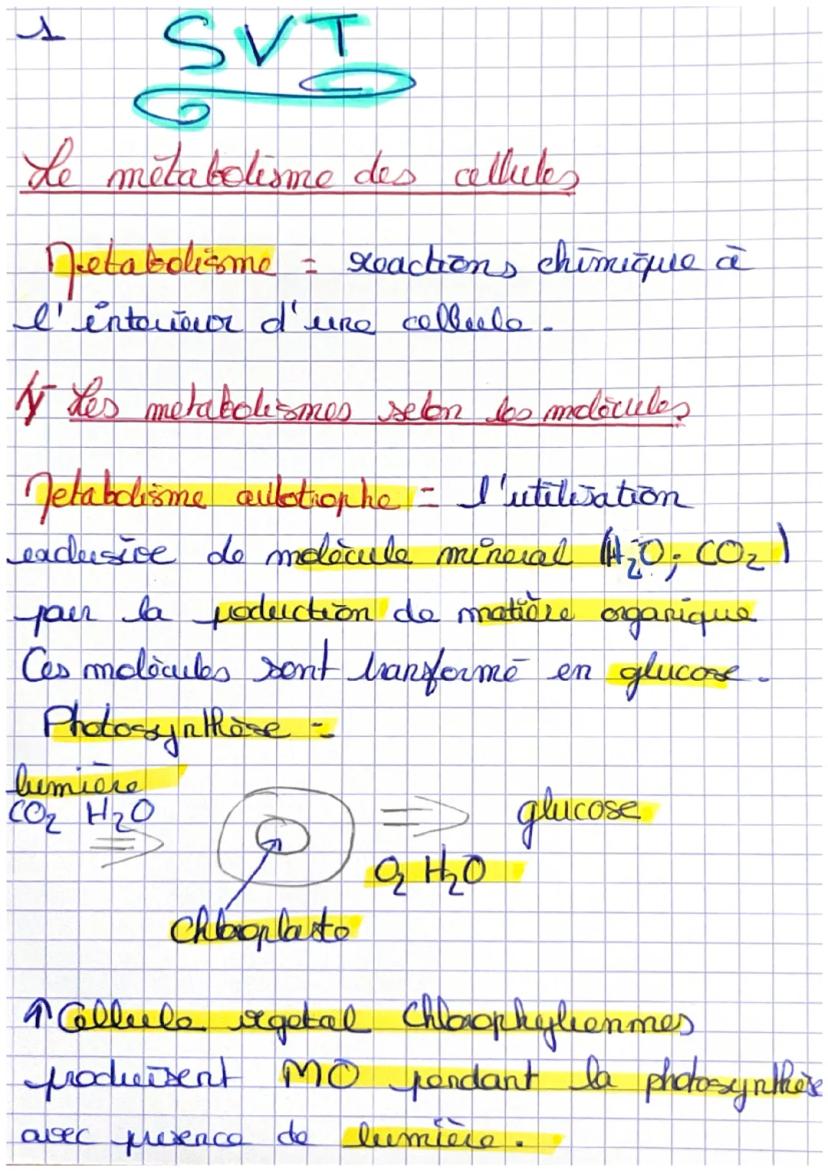 1
SVT
Le métabolisme des cellules
Metabolisme = reactions chimique à
l'interieur d'une cellule.
1/ Les metabolismes selon les molécules
Metabolisme autotrophe = l'utilisation
exclusive de molécule mineral (H₂O; CO₂)
par la production de matière organique
Ces molécules sont transformé en glucose.
Photosynthèse =
lumière
CO₂ H₂O ⇒ ⇒ glucose
O₂ H₂O
Chloroplaste
↑ Cellule vegetal Chlorophyliennmes
produisent MO pendant la photosynthèse
avec presence de lumière.